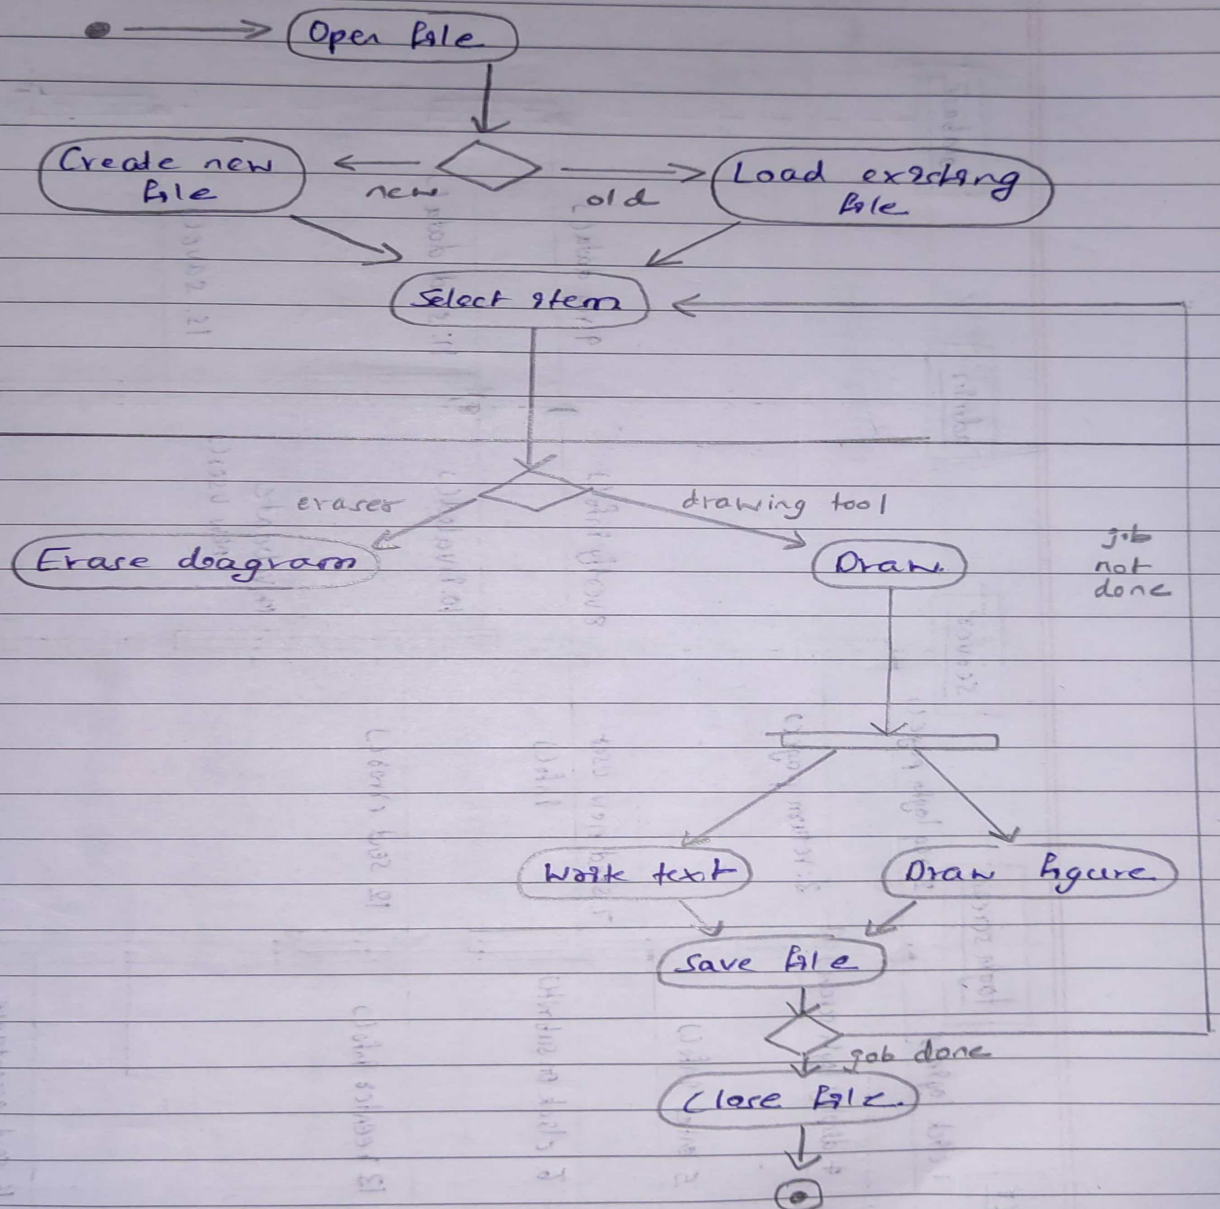 Open file
Create new
file
new
old
Load existing
file
Select item
eraser
drawing tool
Erase diagram
Draw
job
not
done
Write text
Draw figure
Save file
job done
Close file